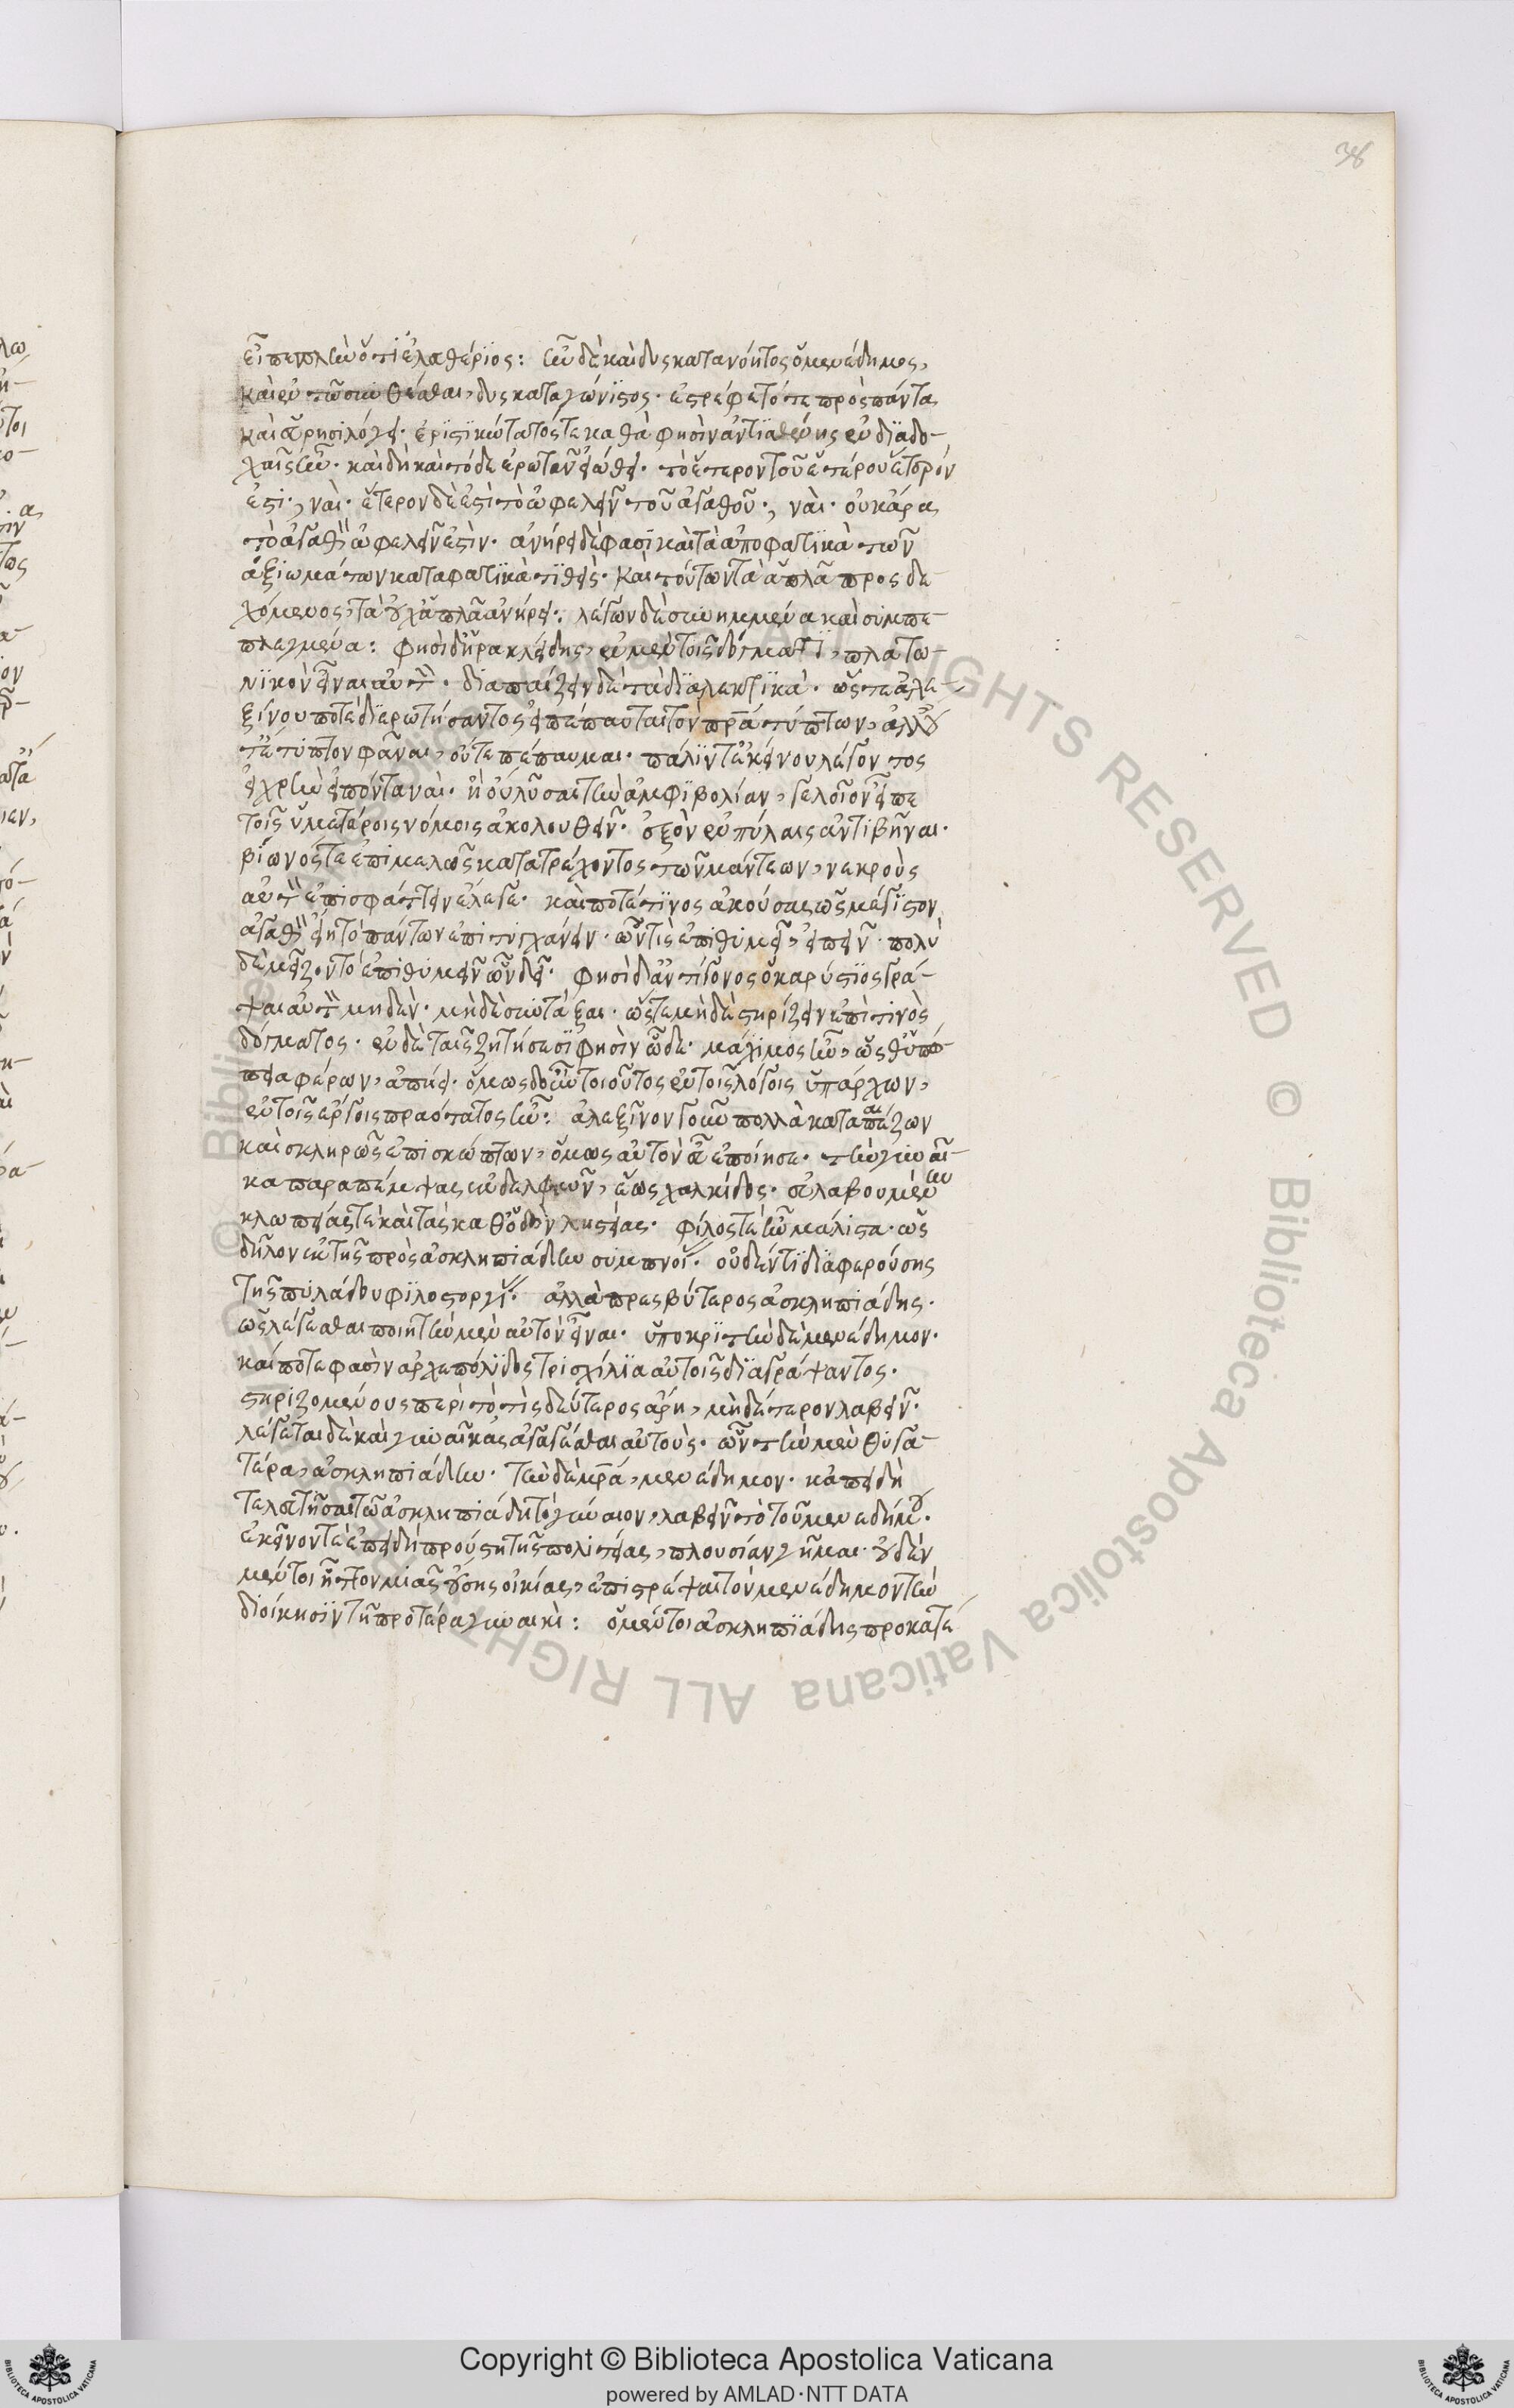 38
εἶπε πλὴν ὅτι ἐλευθέριος: ἦν δὲ καὶ δυσκατανόητος ὁ μενέδημος,
καὶ ἐν τῶ συνθέσθαι, δυσκαταγώνιστος. ἐστρέφετό τε πρὸς πάντα
καὶ εὑρησιλόγει. ἐριστικώτατός τε καθά φησὶν ἀντισθένης ἐν διαδο-
χαῖς ἦν. καὶ δὴ καὶ τόδε ἐρωτᾶν εἰώθει. τὸ ἕτερον τοῦ ἑτέρου ἕτερόν
ἐστι·, ναί. ἕτερον δὲ ἐστὶ τὸ ὠφελεῖν τοῦ ἀγαθοῦ·, ναί. οὐκ ἄρα
τὸ ἀγαθὸν ὠφελεῖν ἐστίν. ἀνήρει δέ φασι καὶ τὰ ἀποφατικὰ τῶν
ἀξιωμάτων καταφατικὰ τιθείς. καὶ τούτων τὰ ἁπλᾶ προσδε
χόμενος, τὰ οὐχ ἁπλᾶ ἀνήρει. λέγων δὲ συνημμένα καὶ συμπε
πλεγμένα: φησὶ δ' ἡρακλείδης, ἐν μὲν τοῖς δόγμασι, πλατω-
νικὸν εἶναι αὐτὸν. διαπαίζειν δὲ τὰ διαλεκτικά. ὥστε ἀλε-
ξίνου ποτὲ διερωτήσαντος εἰ πέπαυται τὸν πρα τύπτων, ἀλλ' οὔ
τε τύπτον φάναι, οὔτε πέπαυμαι. πάλιν τ' ἐκείνου λέγοντος
εἰ χρῆν εἰπόντα ναί. ἢ οὒ λῦσαι τὴν ἀμφιβολίαν, γελοῖον εἶπε
τοῖς ὑμετέροις νόμοις ἀκολουθεῖν. ἐξὸν ἐν πύλαις ἀντιβῆναι.
βίωνός τε ἐπιμελῶς κατατρέχοντος τῶν μάντεων, νεκροὺς
αὐτὸν ἐπισφάττειν ἔλεγε. καί ποτέ τινος ἀκούσας ὡς μέγιστον
ἀγαθὸν εἴη τὸ πάντων ἐπιτυγχάνειν. ὧν τὶς ἐπιθυμεῖ, εἰπεῖν. πολὺ
δὲ μεῖζον τὸ ἐπιθυμεῖν ὧν δεῖ. φησὶ δ' ἀντίγονος ὁ καρύστιος γρά-
ψαι αὐτὸν μηδέν. μηδὲ συντάξαι. ὥστε μηδὲ στηρίζειν ἐπί τινὸς
δόγματος. ἐν δὲ ταῖς ζητήσεσι φησὶν ὧδε. μάχιμος ἦν, ὥσθ' ὑπό-
πεια φέρων, ἀπήει. ὅμως δ' οὖν τοιοῦτος ἐν τοῖς λόγοις ὑπάρχων,
ἐν τοῖς ἔργοις πραότατος ἦν. ἀλεξῖνον γοῦν πολλὰ καταπαίζων
καὶ σκληρῶς ἐπισκώπτων, ὅμως αὐτὸν εὖ ἐποίησε. τὴν γυναῖ-
κα παραπέμψας ἐκ δελφῶν, ἕως χαλκίδος. εὐλαβουμένην
κλωπείας τε καὶ τὰς καθ' ὁδὸν ληστείας. φίλος τε ἦν μάλιστα. ὡς
δῆλον ἐκ τῆς πρὸς ἀσκληπιάδην συμπνοίας. οὐδέν τι διαφερούσης
τῆς πυλάδου φιλοστοργίας. ἀλλὰ πρεσβύτερος ἀσκληπιάδης.
ὡς λέγεσθαι ποιητὴν μὲν αὐτὸν εἶναι. ὑποκριτὴν δὲ μενέδημον.
καί ποτε φασὶν ἀρχεπόλιδος τρισχίλια αὐτοῖς διαγράψαντος.
στηριζομένους περὶ τὸ τίς δεύτερος ἄρῃ, μηδέτερον λαβεῖν.
λέγεται δὲ καὶ γυναῖκας ἀγαγέσθαι αὐτούς. ὧν τὴν μὲν θυγα-
τέρα, ἀσκληπιάδην. τὴν δὲ μρα, μενέδημον. κἀπειδὴ
τελευτῆσαι τῶ ἀσκληπιάδη τὸ γύναιον, λαβεῖν τὸ τοῦ μενεδήμου.
ἐκεῖνόν τε ἐπειδὴ προύστη τῆς πολιτείας, πλουσίαν γῆμαι. οὐδὲν
μέντοι ἧττον μιᾶς οὔσης οἰκίας, ἐπιτρέψαι τὸν μενέδημον τὴν
διοίκησιν τῇ προτέρα γυναικί: ὁ μέντοι ἀσκληπιάδης προκατέ
Copyright © Biblioteca Apostolica Vaticana
powered by AMLAD·NTT DATA